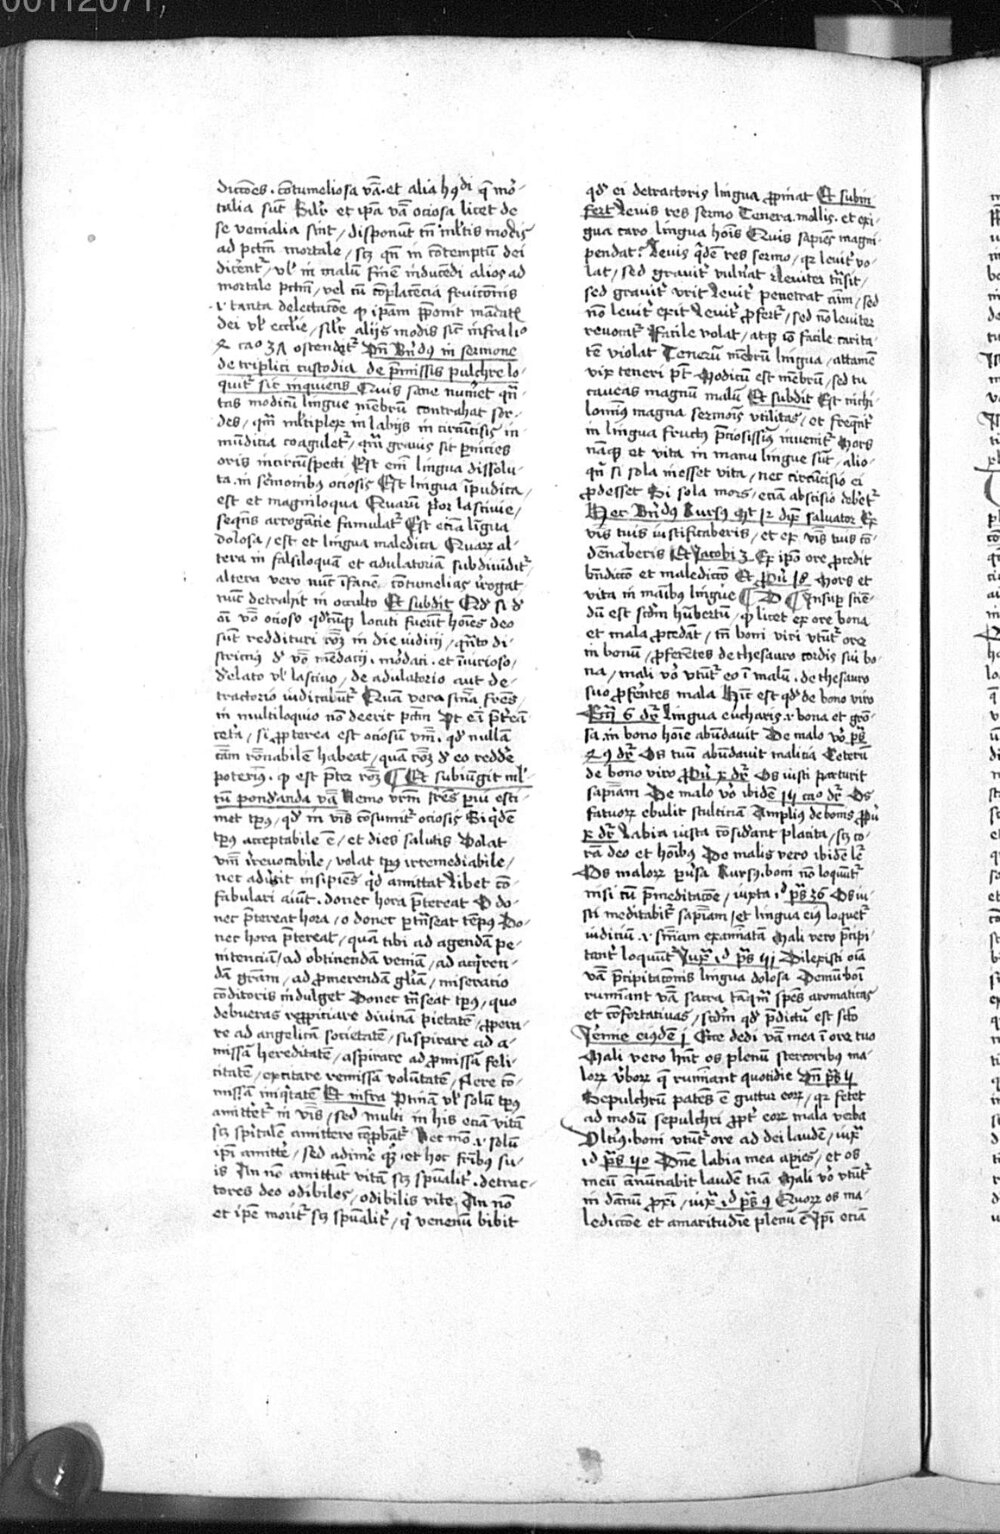 00112071,
dictōes . cōtumeliosa v̄ba . et alia hꝰdi q̄ mōr-
talia sūt Silr et ip̄a v̄ba ociosa licet de
se venialia sint / disponūt tn̄ ml̓tis modis
ad pctm̄ mortale / scꝫ qn̄ in cōtemptū dei
dicētur / vl in malū finē inducēdi alios ad
mortale pctm̄ / vel cū cōplacētia fruicionis
.i. tanta delectacōe ꝙ ip̄am p̄ponit mādatꝭ
dei vl eccl̓ie / silr alijs modis sic̄ infra li°
ca° ostendetʳ Vn̄ Bn̄dꝰ in sermone
de triplici custodia de p̄missis pulchre lo-
quitʳ sic inquiens Quis sane num̄et qn̄-
tas modicū lingue mēbrū contrahat sor-
des / qm̄ ml̓tiplex in labijs in circūcisis in-
mūdicia coaguletʳ / qm̄ gravis sit p̄nicies
oris incircūspecti Est em̄ lingua dissolu-
ta . in sermonibꝰ ociosis Est lingua īpudica /
est et magniloqua Quarū p̓or lascivie /
seqn̄s arrogancie famulatʳ Est eciā lingua
dolosa / est et lingua maledica Quaꝝ al-
tera in falsiloquā et adulatoriā subdividitʳ
altera vero nūc ī faciē cōtumelias irrogat
nūc detrahit in occulto Et subdit Qd̓ si d̓
oī v̓bo ocioso qd̓cūqꝫ locuti fuerīt hoīes deo
sūt reddituri rōꝫ in die iudicij / qn̄to di-
strictiꝰ d̓ v̓bo mēdacij . mordaci . et iniurioso /
d̓ elato vl lascivo / de adulatorio aut de-
tractorio iudicabūtʳ Quā vera sīma fr̄es
in multiloquio nō deerit pctm̄ Vt eī p̄tereā
cet̄a / si ꝓpterea est ociosū v̄bm . qd̓ nullā
cām rōnabilē habeat / quā rōꝫ d̓ eo redde
poterimꝰ . ꝙ est p̄ter rōꝫ ¶ Et subiungit ml̓-
tū pond̓anda v̄ba Nemo vr̄m fr̄es p̄vi esti-
met tp̄ꝰ / qd̓ in v̄bis cōsumitʳ ociosis Siqdē
tp̄ꝰ acceptabile ē / et dies salutis Volat
v̄bm irrevocabile / volat tp̄ꝰ irremediabile /
nec advertit insipiēs qd̓ amittat Libet cō-
fabulari aiūt . donec hora p̄tereat O do-
nec p̄tereat hora / o donec p̄trāseat tēpꝰ Do-
nec hora p̄tereat / quā tibi ad agendā pe-
nitenciā / ad obtinendā veniā / ad acq̓ren-
dā grām / ad ꝓmerendā gl̓iā / miseratio
cōditoris indulget Donec trāseat tp̄ꝰ / quo
debueras reppiciare divinā pietatē / ꝓpera-
re ad angelicā societatē / suspirare ad a-
missā hereditatē / aspirare ad ꝓmissā feli-
citatē / excitare remissā volūtatē / flere cō-
missā iniq̓tatē Et infra vl solū tp̄ꝰ
amitterēt in v̄bis / sed multi in his eciā vitā
scꝫ sp̄italē amittere cōprobātʳ Nec mō .i. solū
ip̄i amittē / sed adimē qꝫ . et hoc fr̄ibꝰ su-
is An nō amittunt vitā scꝫ sp̄ualitʳ . detrac-
tores deo odibiles / odibilis vite An nō
et ip̄e moritʳ scꝫ sp̄ualitʳ / q̓ venenū bibit
qd̓ ei detractoris lingua ꝓpinat Et subin
fert Levis res sermo Tenera . mollis . et exi-
gua caro lingua hoīs Quis sapiēs magni
pendat? Levis q̓dē res sermo / qꝛ levitʳ vo-
lat / sed gravitʳ vulnat Leviter trāsit /
sed gravitʳ urit Levitʳ penetrat aīm / sed
nō levitʳ exit Levitʳ ꝓfertʳ / sed nō leviter
revocatʳ Facile volat / atqꝫ iō facile carita-
tē violat Tenerū mēbrū lingua / attamē
vix teneri pt̄ Modicū est mēbrū / sed tu
caveas magnū malū Et subdit Est nichi-
lominꝰ magna sermonis utilitas / et freqn̄t̓
in lingua fructꝰ p̄ciosissimꝰ invenitʳ Mors
nāqꝫ et vita in manu lingue sūt / alio-
qn̄ si sola inesset vita / nec circūcisio ei
ꝓdesset Si sola mors / eciā abscisio debetʳ
Hec Bn̄dꝰ Rursꝰ Mt 12 dixit salvator Ex
v̄bis tuis iustificaberis / et ex v̄bis tuis cō-
dēnaberis Et Jacobi 3 Ex ip̄o ore ꝓcedit
bn̄dictō et maledictō Et ꝓv̓ 18 Mors et
vita in manibꝰ lingue ¶ D ¶ Insuꝑ sciē-
dū est scdm̄ hūbertū / ꝙ licet ex ore bona
et mala ꝓcedāt / tn̄ boni viri utūtʳ ore
in bonū / ꝓferētes de thesauro cordis sui bo-
na / mali v̓o utūtʳ eo ī malū . de thesauro
suo ꝓferētes mala Hīc est qd̓ de bono viro
Eccī 6 dʳ Lingua eucharis .i. bona et grō-
sa . in bono hoīe abūdavit De malo v̓o ps̄
dʳ Os tuū abūdavit malicia Ceterū
de bono viro ꝓv̓ x dʳ Os iusti parturit
sapīam De malo v̓o ibidē ca° dʳ Os
fatuoꝝ ebulit stulticiā Ampliꝰ de bonis ꝓv̓
x dʳ Labia iusta cōsidant placita / scꝫ co-
rā deo et hoībꝰ De malis vero ibidē le̓
Os maloꝝ ꝑv̓sa Rursꝰ . boni nō loqūtʳ
nisi cū p̄meditacōe / iuxta id ps̄ 36 Os iu-
sti meditabitʳ sapīam / et lingua eiꝰ loquetʳ
iudiciū .i. sn̄iam examinatā Mali vero p̄cipi-
tantʳ loquūtʳ Juxᵃ id ps̄ Dilexisti oīa
v̄ba p̄cipitacionis lingua dolosa Demū boni
ruminant v̄ba sacra tāqm̄ sp̄es aromaticas
et cōfortativas / scdm̄ qd̓ p̄dictū est scō
Jeremie eiusdē j Ecce dedi v̄ba mea ī ore tuo
Mali vero hn̄t os plenū stercoribus ma-
loꝝ v̓boꝝ q̄ rumināt quotidie Vn̄ ps̄ ij
Sepulchrū patēs ē guttur eoꝝ / qꝛ fetet
ad modū sepulchri ꝓpt̓ eoꝝ mala verba
Vltiꝰ boni utūtʳ ore ad dei laudē / iuxᵃ
id ps̄ Dn̄e labia mea aꝑies / et os
meū anūciabit laudē tuā Mali v̓o utūtʳ
in dānū ꝓxi / iuxᵃ id ps̄ 9 Quoꝝ os ma-
ledictōe et amaritudīe plenū ē Ip̄i eciā